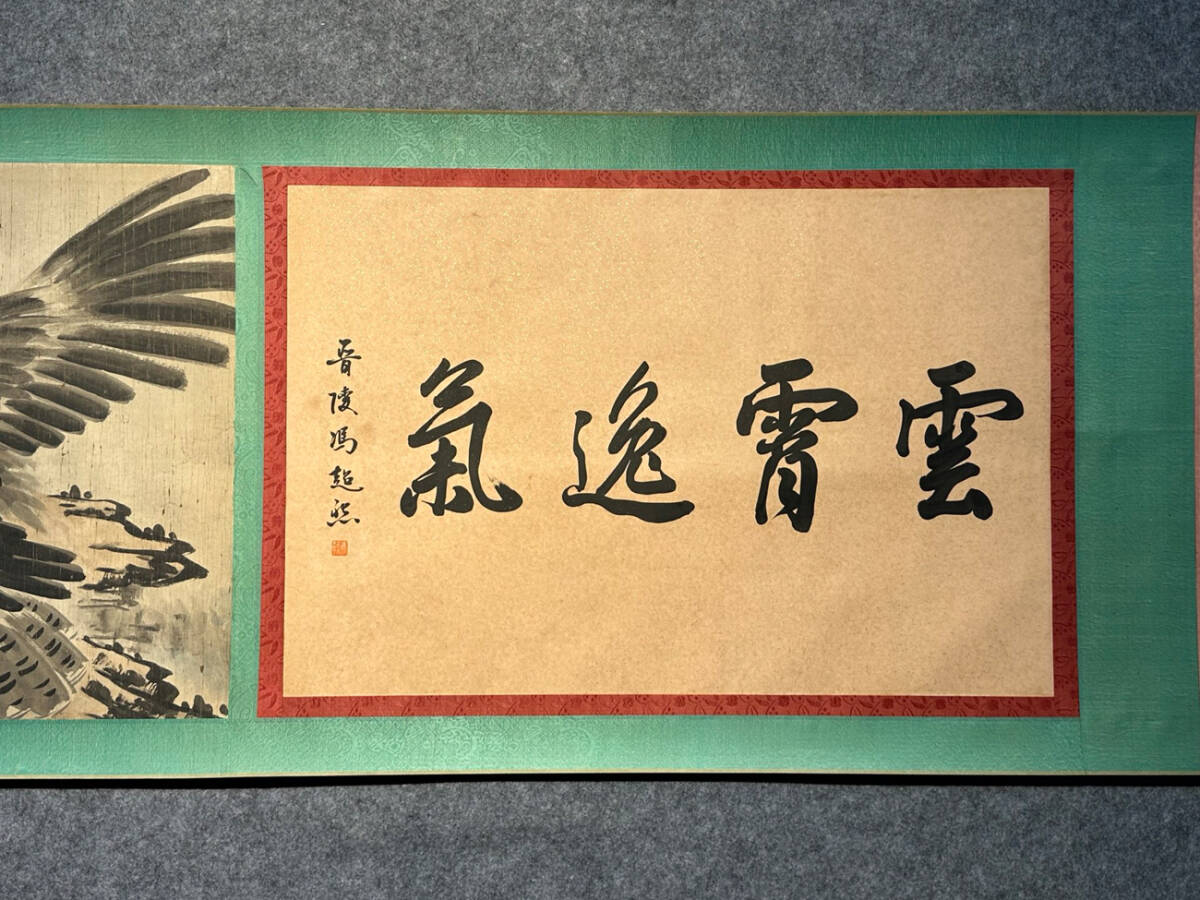 雲霄逸氣
晋陵馮超然